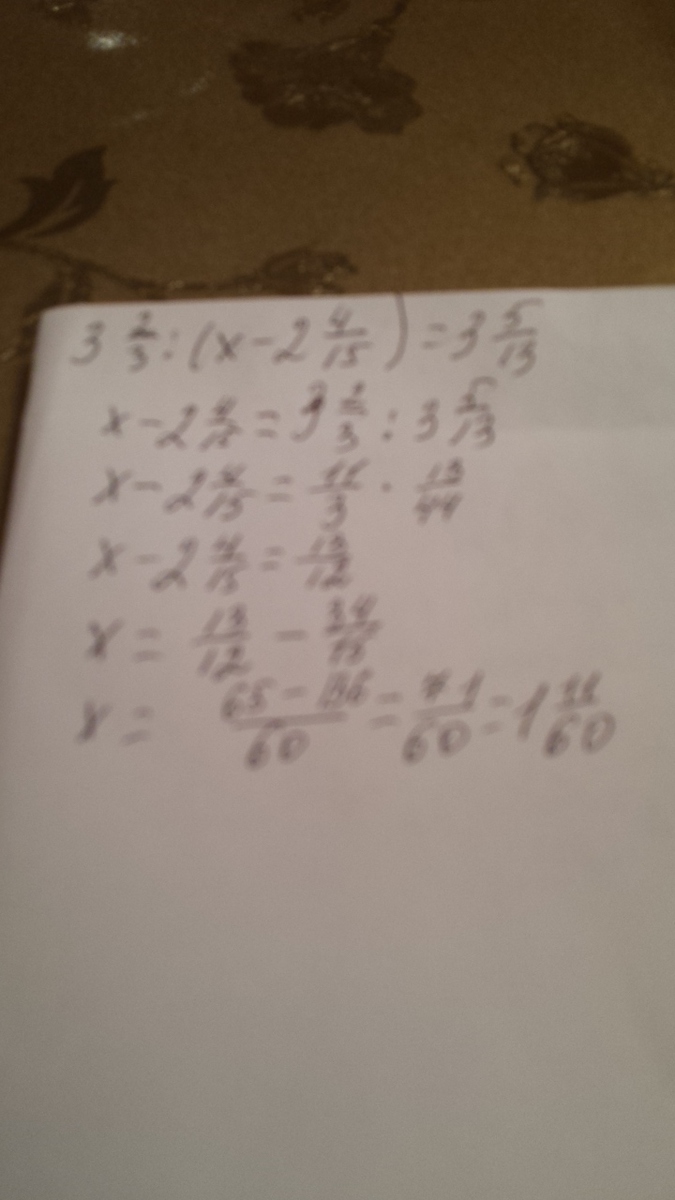 3 2/3 : (x - 2 4/15) = 3 5/13
x - 2 4/15 = 3 2/3 : 3 5/13
x - 2 4/15 = 11/3 · 13/44
x - 2 4/15 = 13/12
x = 13/12 - 34/15
x = (65 - 136)/60 = 71/60 = 1 11/60